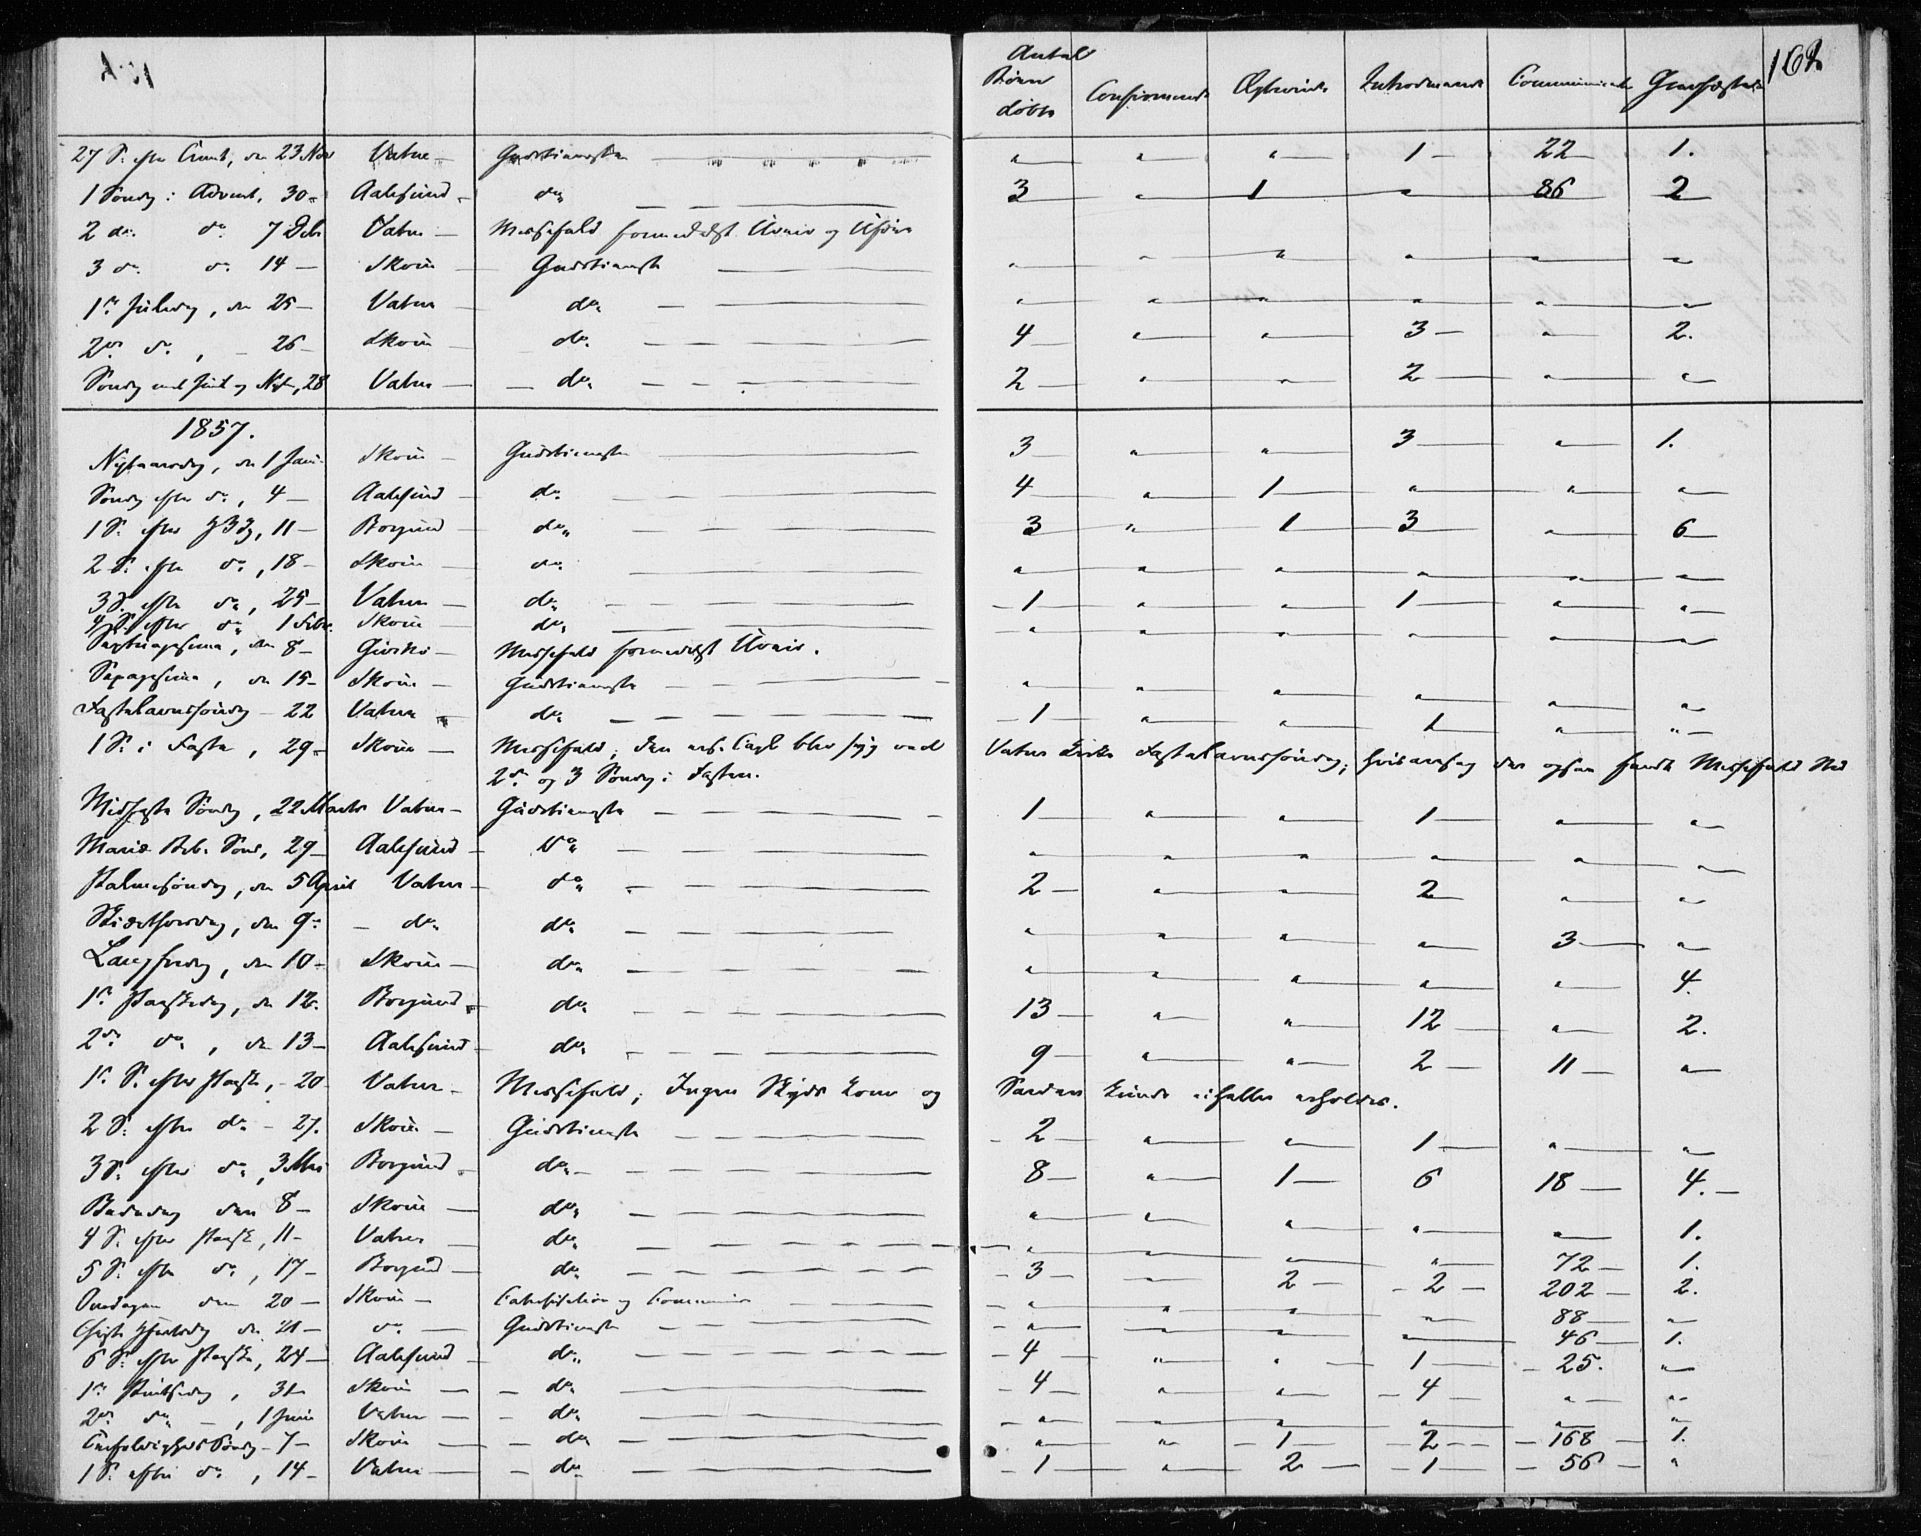 Antal Børn døbte | Confirmerede | Ægtevinde | Introducerede | Communicanter | Gravfæstede | 162
27 S. efter Trinit, den 23 Nov | Vatne | Gudstieneste | " | " | " | 1 | 22 | 1.
1 Søndag i Advent, 30 | Aalesund | do | 3 | " | 1 | " | 86 | 2
2 do do 7 Decbr | Vatne | Messefald formedelst Uveir og
3 do do 14 | Skoue | Gudstieneste | " | " | " | " | " | "
1ste Juledag, den 25 | Vatne | do | " | " | " | " | " | "
2den do, 26 | Skoue | do | 4 | " | " | 3 | " | 2.
Søndag mel. Juul og Nytaar, 28 | Vatne | do | 2 | " | " | 2 | " | "
1857.
Nytaarsdag, den 1 Jan. | Skoue | Gudstieneste | 3 | " | " | 3 | " | 1.
Søndag efter do, 4 | Aalesund | do | 4 | " | 1 | " | " | "
1 S. efter H3K, 11 | Borgund | do | 3 | " | 1 | 3 | " | 6
2 S. efter do, 18 | Skoue | do | " | " | " | " | " | "
3 S. efter do, 25 | Vatne | do | 1 | " | " | 1 | " | "
4 S. efter do, 1 Febr. | Skoue | do | " | " | " | " | " | "
Septuagesima, den 8 | Giviske | Messefald formedelst Uveir.
Sexagesima, den 15 | Skoue | Gudstieneste | " | " | " | " | " | "
Fastelavnssøndag 22 | Vatne | do | 1 | " | " | 1 | " | "
1 S. i Faste, 29 | Skoue | Messefald; den Capl. blev syg ved Vatne Kirke Fastelavnssøndag; hvisaarsag der ogsaa fandt Messefald Sted
2den og 3 Søndag i Fasten.
Midfaste Søndag, 22 Marts | Vatne | Gudstieneste | 1 | " | " | 1 | " | "
Mariæ Beb. Sønd, 29 | Aalesund | do | " | " | " | " | " | "
Palmesøndag, den 5 April | Vatne | do | 2 | " | " | 2 | " | "
Skiærthorsdag, den 9 | do | do | " | " | " | " | 3 | "
Langfredag, den 10 | Skoue | do | " | " | " | " | " | 4.
1ste Paaskedag, den 12. | Borgund | do | 13 | " | " | 12 | " | 2.
2den do, den 13 | Aalesund | do | 9 | " | " | 2 | 11 | "
1ste S. efter Paaske, 20 | Vatne | Messefald; Ingen Skyds kom og Saadan kunde ei heller erholdes.
2 S. efter do 27. | Skoue | Gudstieneste | 2 | " | " | 1 | " | "
3 S. efter do, 3 Mai | Borgund | do | 8 | " | 1 | 6 | 18 | 4.
Bededag den 8 | Skoue | do | " | " | " | " | " | 1.
4 S. efter Paaske, 11 | Vatne | do | " | " | " | " | 72 | 1.
5 S. efter do, 17 | Borgund | do | 3 | " | 2 | 2 | 202 | 2.
Onsdagen den 20 | Skoue | Catechisation og Communion | " | " | " | " | 88 | "
Christi Himmelf.dag den 21 | do | Gudstieneste | " | " | " | " | 46 | 1.
6 S. efter Paaske, 24 | Aalesund | do | 4 | " | " | 1 | 25. | "
1ste Pintsedag, 31 | Skoue | do | 4 | " | " | 4 | " | "
2den do, 1 Juni | Vatne | do | " | " | " | " | " | "
Trefoldigheds Søndag 7 | Skoue | do | " | " | 1 | 2 | 168 | 1.
1 S. efter do, 14 | Vatne | do | 1 | " | 2 | 1 | 56 | "